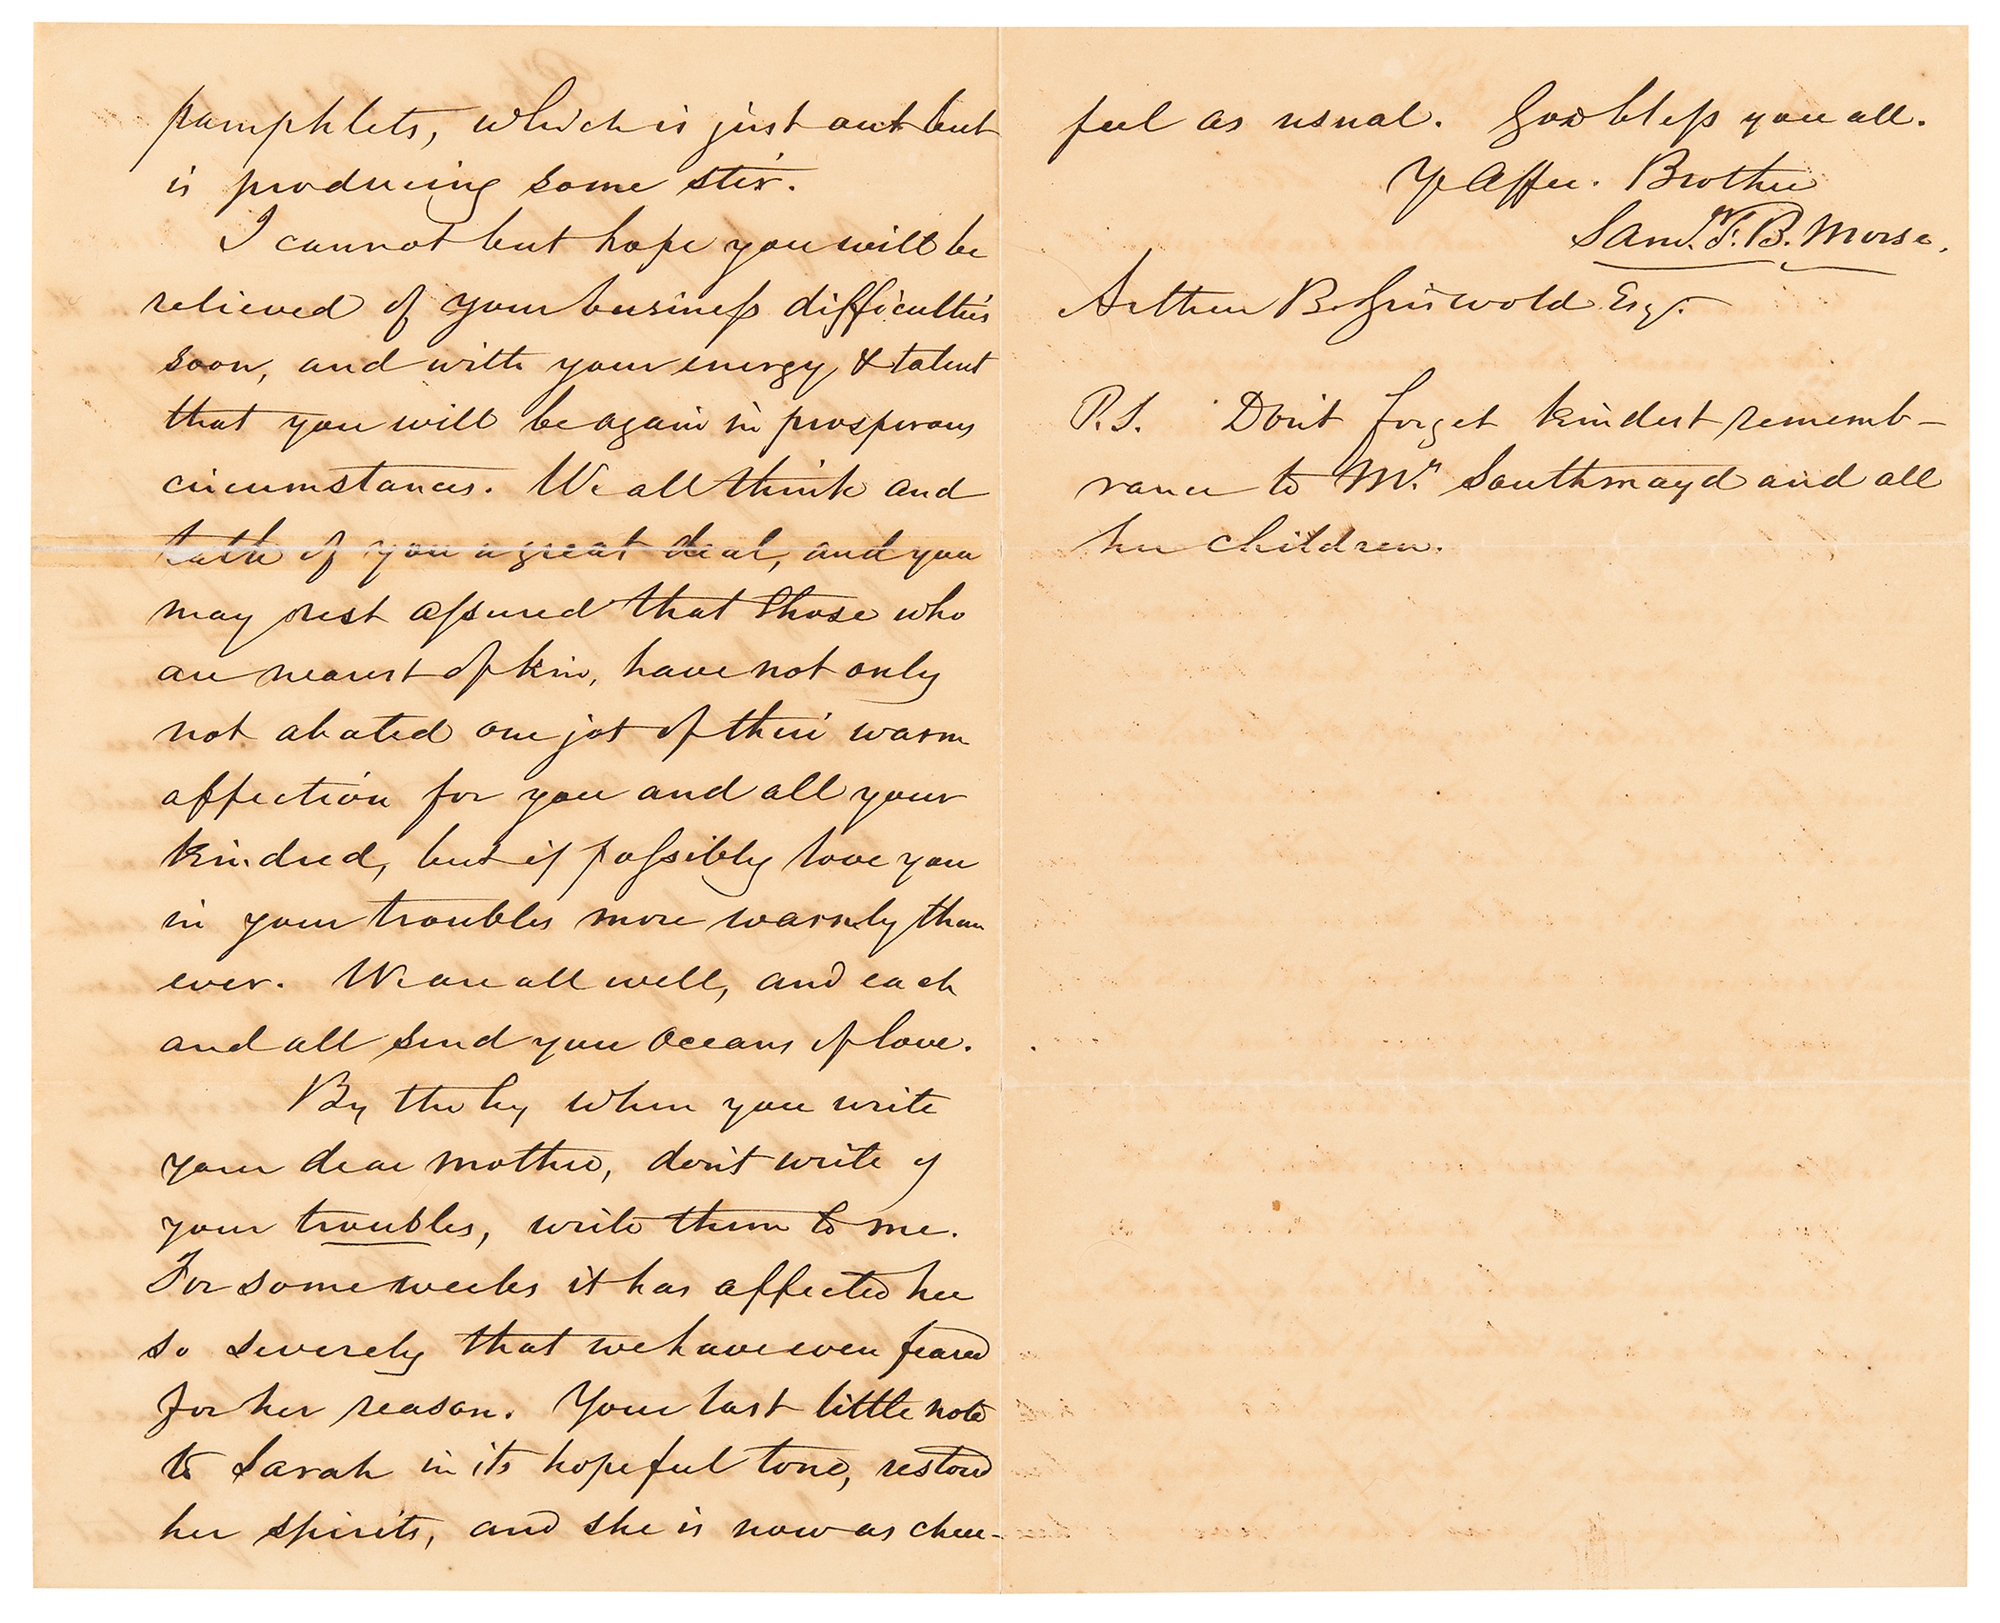 pamphlets, which is just out but
is producing some stir.
I cannot but hope you will be
relieved of your business difficulties
soon, and with your energy & talent
that you will be again in prosperous
circumstances. We all think and
talk of you a great deal, and you
may rest assured that those who
are nearest of kin, have not only
not abated one jot of their warm
affection for you and all your
kindred, but if possibly love you
in your troubles more warmly than
ever. We are all well, and each
and all send you oceans of love.
By the by when you write
your dear mother, don't write of
your troubles, write them to me.
For some weeks it has affected her
so severely that we have even feared
for her reason. Your last little note
to Sarah in its hopeful tone, restored
her spirits, and she is now as cheer-
ful as usual. God bless you all.
Yr Affec. Brother
Saml. F. B. Morse.
Arthur B. Griswold Esq.
P.S. Don't forget kindest rememb-
rance to Mr. Southmayd and all
her children.